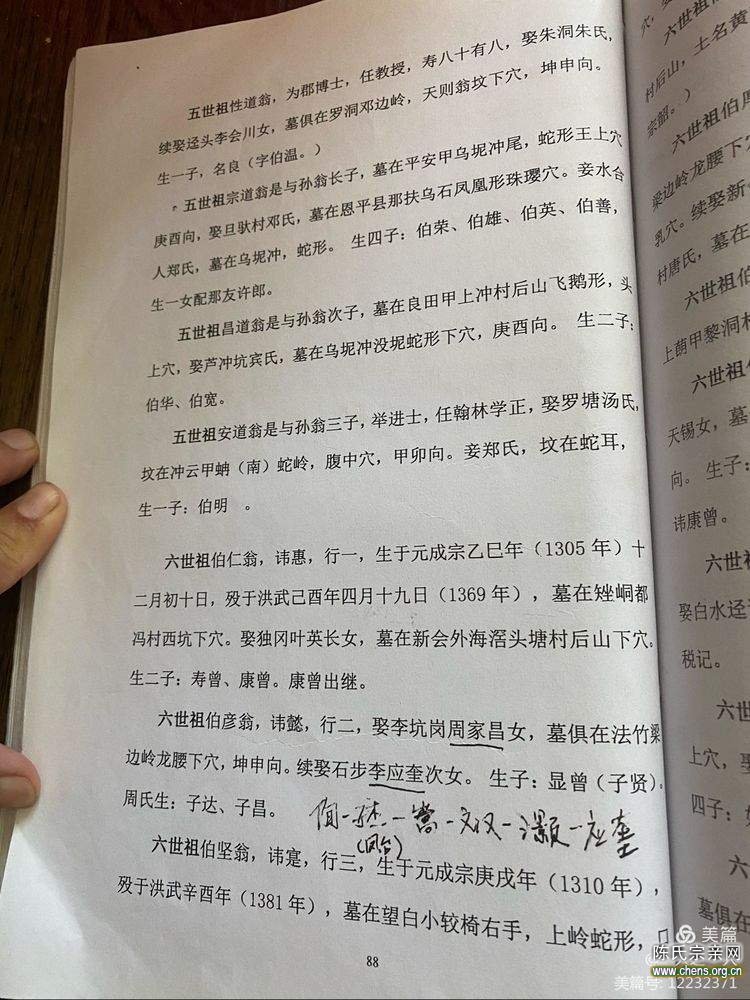 五世祖性道翁，为郡博士，任教授，寿八十有八，娶朱洞朱氏，
续娶迳头李会川女，墓俱在罗洞邓边岭，天则翁坟下穴，坤申向。
生一子，名良（字伯温。）
五世祖宗道翁是与孙翁长子，墓在平安甲乌坭冲尾，蛇形王上穴
庚酉向，娶旦驮村邓氏，墓在恩平县那扶乌石凤凰形珠璎穴。妾水台
人郑氏，墓在乌坭冲，蛇形。 生四子：伯荣、伯雄、伯英、伯善，
生一女配那友许郎。
五世祖昌道翁是与孙翁次子，墓在良田甲上冲村后山飞鹅形，头
上穴，娶芦冲坑宾氏，墓在乌坭冲没坭蛇形下穴，庚酉向。 生二子：
伯华、伯宽。
五世祖安道翁是与孙翁三子，举进士，任翰林学正，娶罗塘汤氏，
坟在冲云甲蚺（南）蛇岭，腹中穴，甲卯向。妾郑氏，坟在蛇耳，
生一子：伯明 。
六世祖伯仁翁，讳惠，行一，生于元成宗乙巳年（1305 年）十
二月初十日，殁于洪武己酉年四月十九日（1369 年），墓在矬峒都
冯村西坑下穴。娶独冈叶英长女，墓在新会外海滘头塘村后山下穴。
生二子：寿曾、康曾。康曾出继。
六世祖伯彦翁，讳懿，行二，娶李坑岗周家昌女，墓俱在法竹梁
边岭龙腰下穴，坤申向。续娶石步李应奎次女。 生子：显曾（子贤）。
周氏生：子达、子昌。
六世祖伯坚翁，讳寔，行三，生于元成宗庚戌年（1310 年），
殁于洪武辛酉年（1381 年），墓在望白小较椅右手，上岭蛇形，
88
六世祖伯
村后山，土名黄
宗韶。）
六世祖伯周
梁边岭龙腰下穴
乳穴。续娶新
村唐氏，墓在
六世祖伯
上萌甲黎洞村
六世祖伯
天锡女，墓
向。 生子：
讳康曾。
六世祖
娶白水迳
税记。
六世祖
上穴，娶
四子：
六
墓俱在
美篇
陈氏宗亲网
www.chens.org.cn
美篇号: 12232371